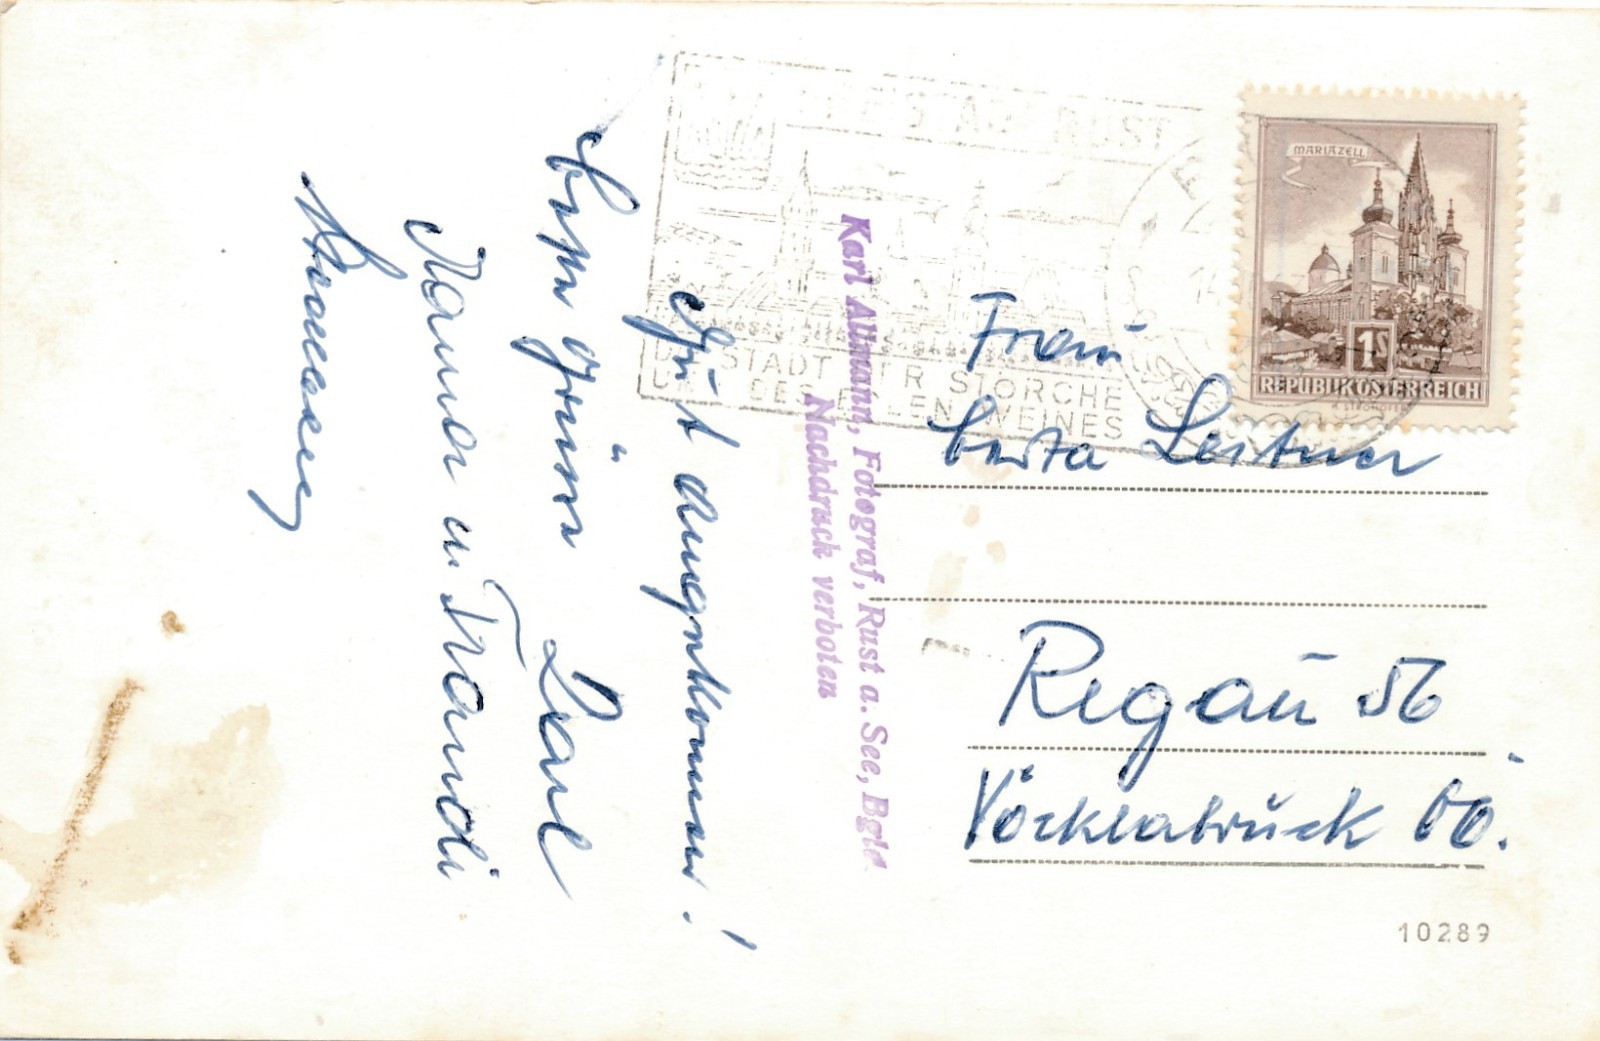 Gut angekommen!
Es grüssen Karl
Hanna u. Traudi
Karl Allmann, Fotograf, Rust a. See, Bgld
Nachdruck verboten
RUST
DIE STADT DER STÖRCHE
UND DES EDLEN WEINES
MARIAZELL
1S
REPUBLIK ÖSTERREICH
Frau
Berta Leitner
Regau 56
Vöcklabruck OÖ.
10289